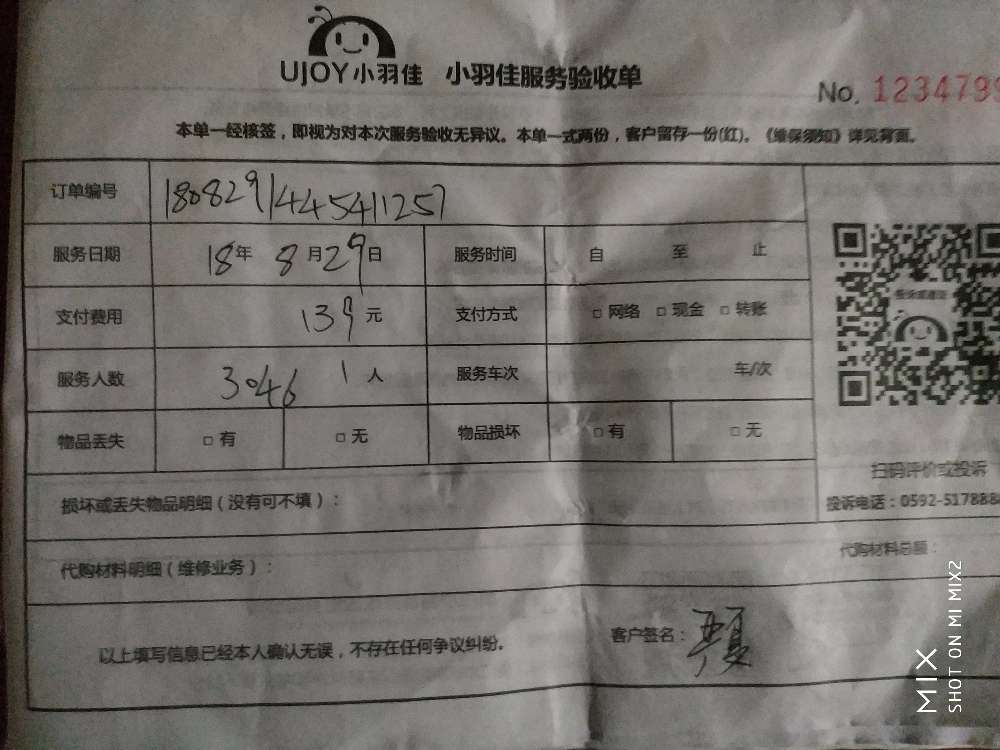 UJOY小羽佳 小羽佳服务验收单
No. 1234799
本单一经核签，即视为对本次服务验收无异议。本单一式两份，客户留存一份(红)。《维保须知》详见背面。
订单编号 1808291445411257
服务日期 18年 8月29日 服务时间 自 至 止
支付费用 139元 支付方式 □ 网络 □ 现金 □ 转账
服务人数 3046 1人 服务车次 车/次
物品丢失 □ 有 □ 无 物品损坏 □ 有 □ 无
扫码评价或投诉
投诉电话：0592-517888
损坏或丢失物品明细（没有可不填）：
代购材料明细（维修业务）： 代购材料总额：
以上填写信息已经本人确认无误，不存在任何争议纠纷。 客户签名：
MIX
SHOT ON MI MIX2